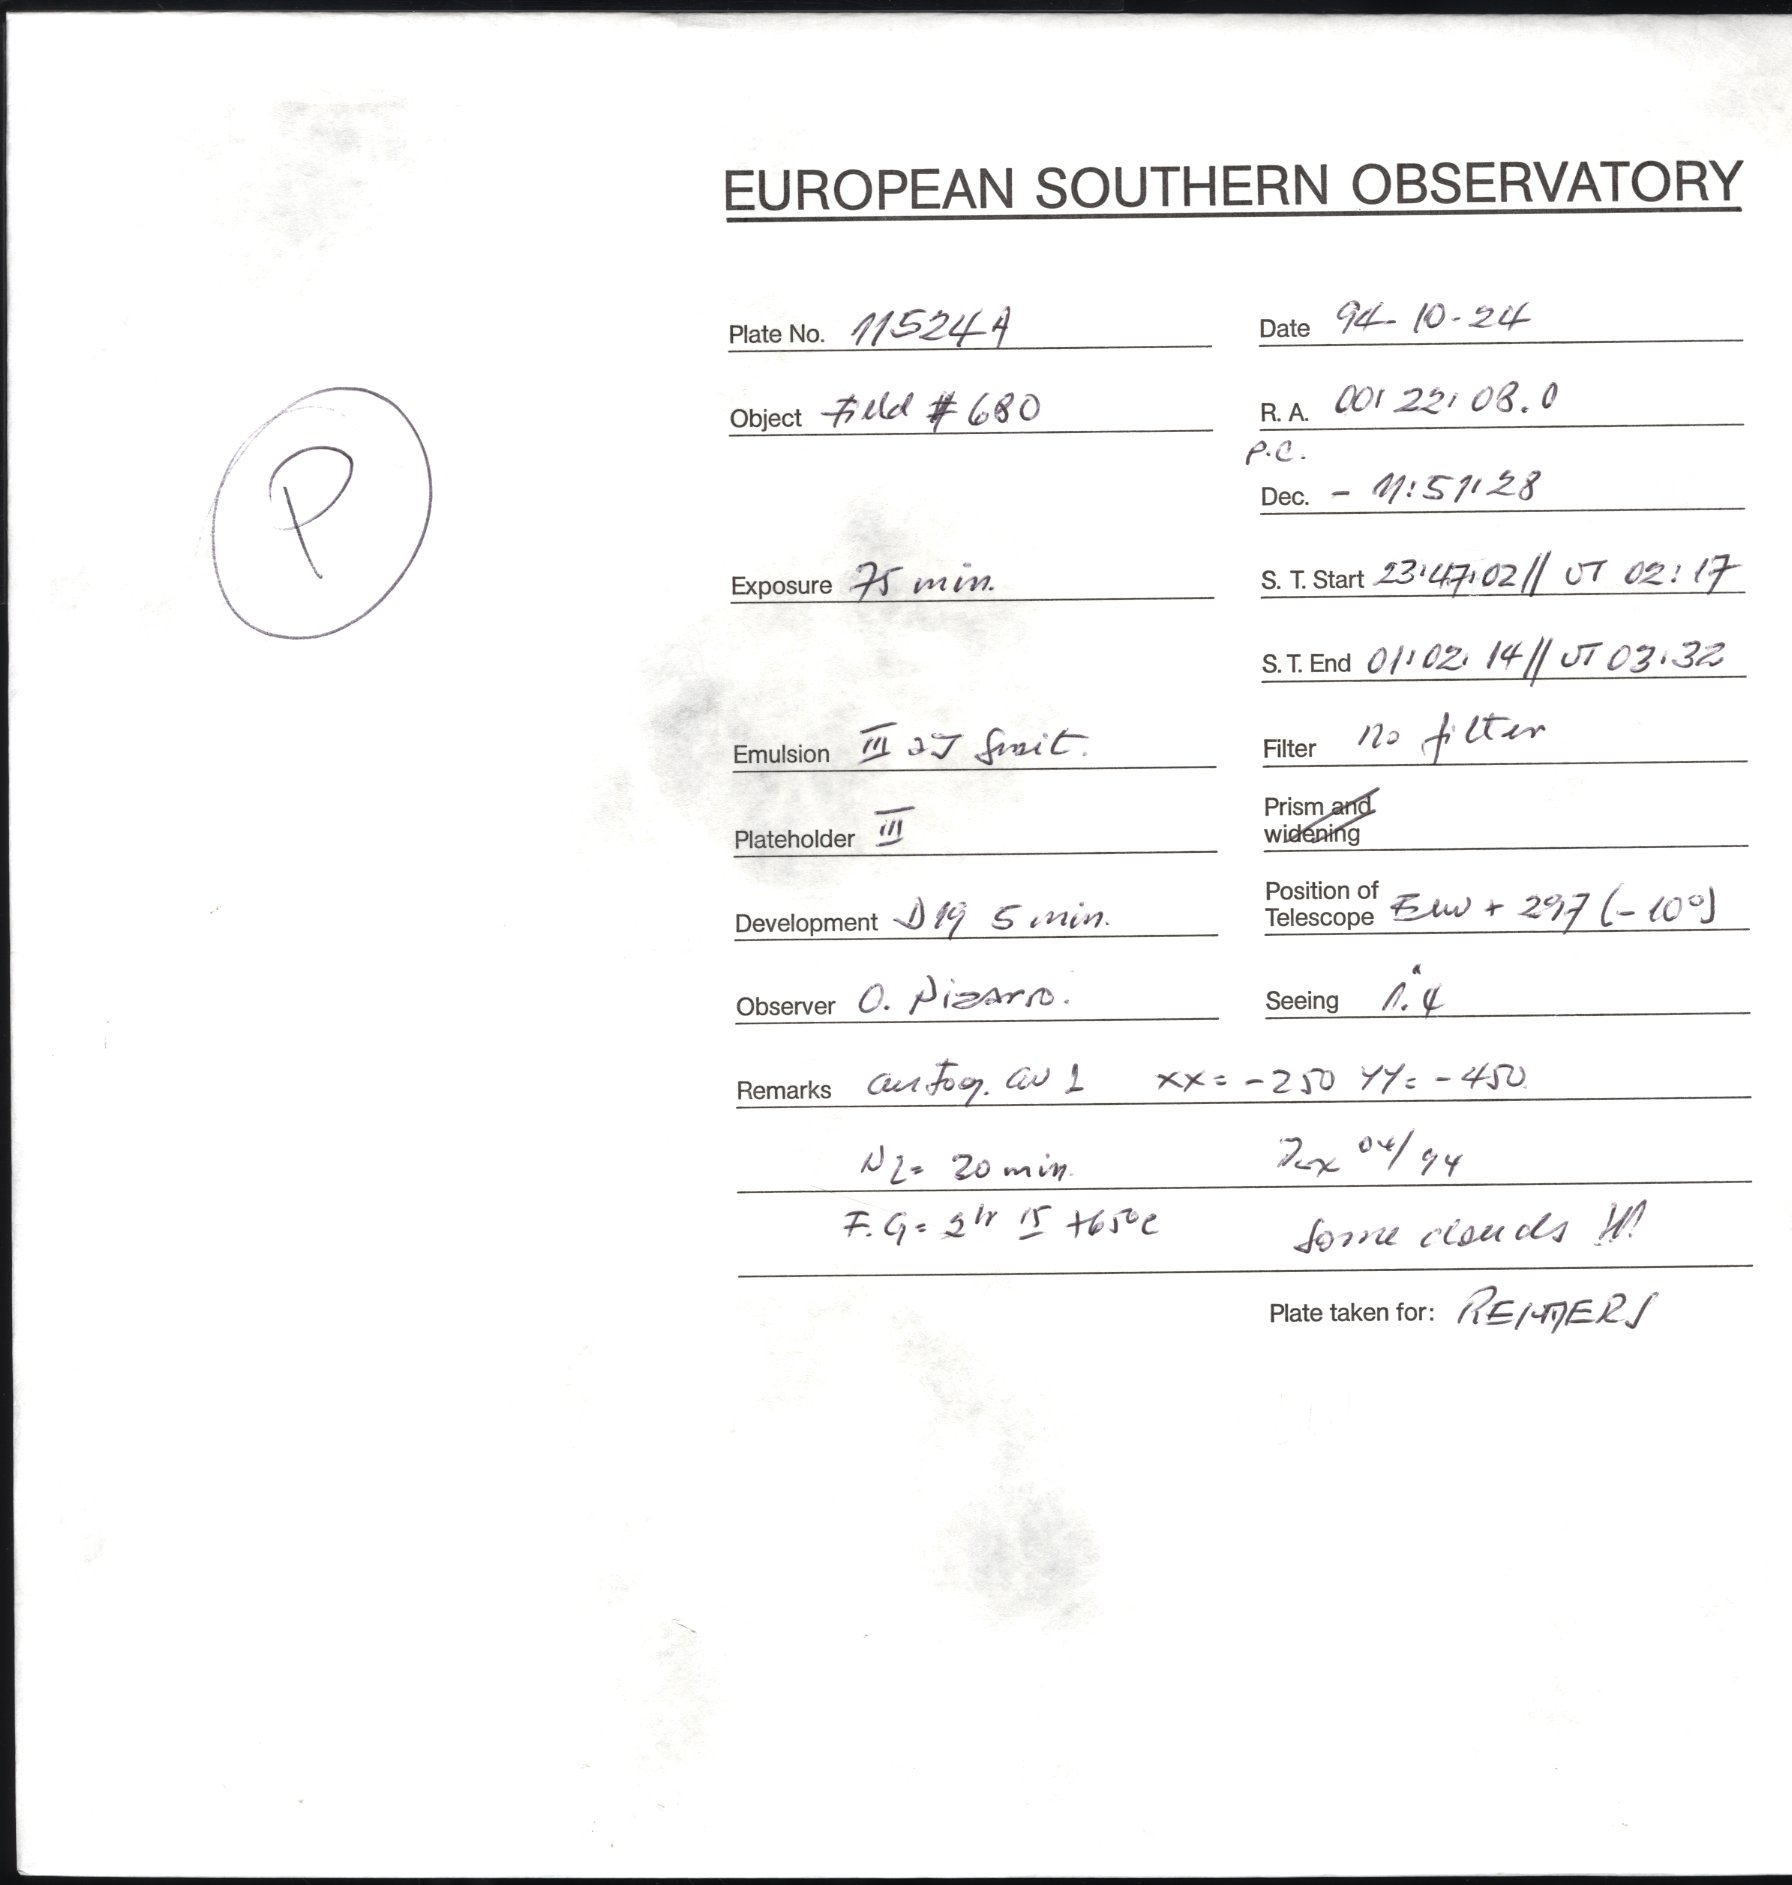 EUROPEAN SOUTHERN OBSERVATORY
Plate No. 11524A Date 94-10-24
Object Field # 680 R. A. 00: 22: 08.0
P
P.C.
Dec. - 11:51:28
Exposure 75 min. S. T. Start 23:47:02 // UT 02:17
S. T. End 01:02:14 // UT 03:32
Emulsion III aJ Filter no filter
Plateholder III Prism and widening
Development D19 5 min. Position of Telescope EW + 297 (-10°)
Observer O. Pizarro. Seeing 1".4
Remarks XX= -250 YY= -450
N2= 20 min. 04/94
F.G= 2hr 15 +65°C Some clouds !!!
Plate taken for: REIMERS